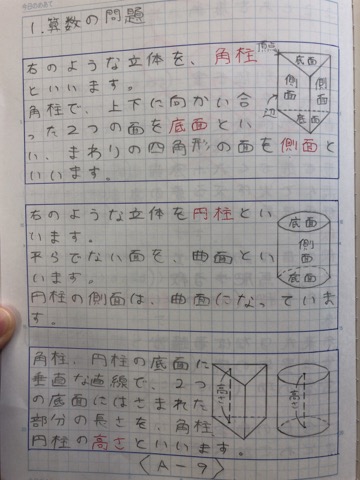 1.算数の問題
右のような立体を、角柱
といいます。
角柱で、上下に向かい合
った2つの面を底面とい
い、まわりの四角形の面を側面と
いいます。
頂点
底面
側面
側面
辺
底面
右のような立体を円柱とい
います。
平らでない面を、曲面とい
います。
円柱の側面は、曲面になっていま
す。
底面
側面
底面
角柱、円柱の底面に
垂直な直線で、2つ
の底面にはさまれた
部分の長さを、角柱、
円柱の高さといいます。
高さ
高さ
〈A-9〉